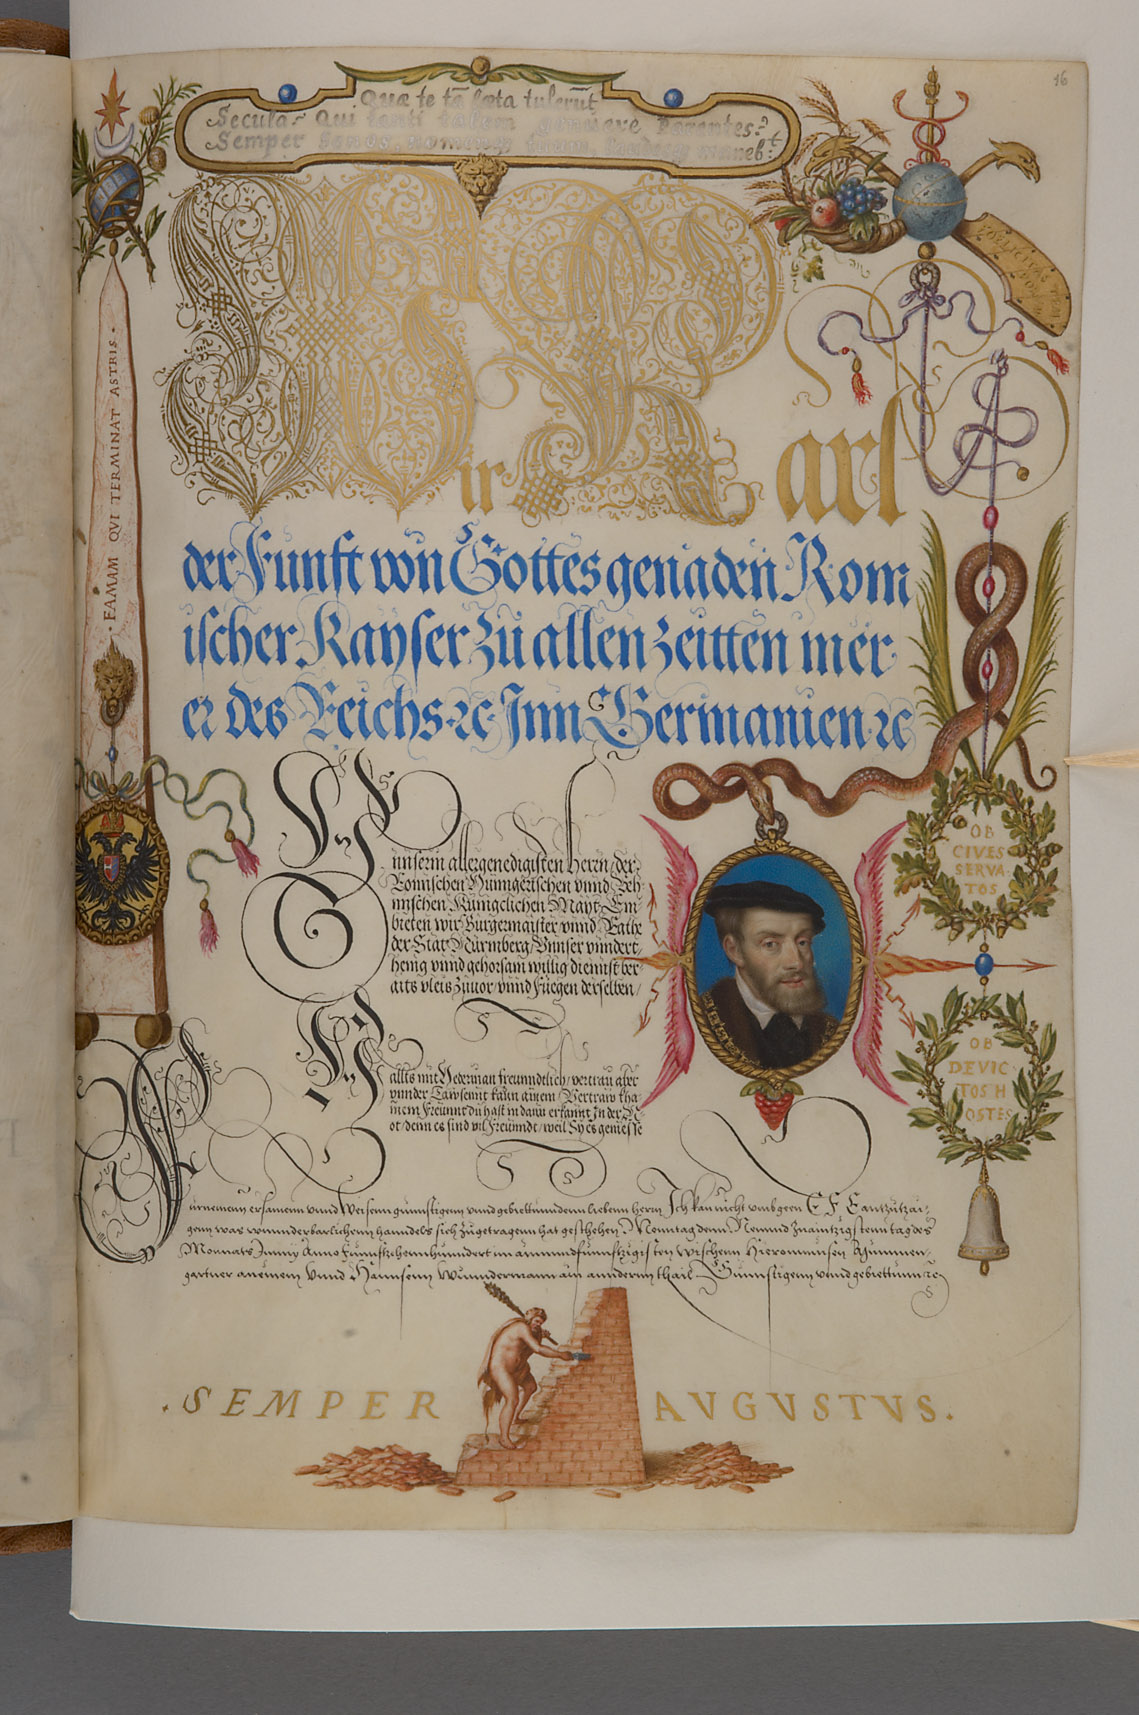 16
Quæ te tā læta tulerūt
Secula? Qui tanti talem genuere Parentes?
Semper honos, nomenq; tuum, laudesq; maneb:t
FAMAM QVI TERMINAT ASTRIS.
Wir Karl
der Funft von Gottes genaden Rom
ischer Kayser zu allen zeitten mer
er des Reichs ꝛc Inn Germanien ꝛc
unserm allergenedigisten Herrn der
Romischen Hünngerischen vnnd Beh
mischen Künigelichen Mayt. Em
bieten wir Burgermaister vnnd Rathe
der Stat Nürmberg Vnnser vnndert
henig vnnd gehorsam willig diennst ber
aits vleis zuuor vnnd Fuegen derselben
allts mit Yederman freunndtlich vertrau aber
vnnder Tawsennt kaum ainem Vertraw
inem Freunnt du hast in dann erkannt In der N
ot denn es sind vil Freunndt weil Sy es geniesse
urnemenn ersamenn vnnd Weisenn gunnstigenn vnnd gebiettunndenn liebenn herrn Ich kan nicht vmbgeen E F E antzutzai
genn was wunnderbarlichenn hanndels sich zugetragenn hat geschehen Monntag denn Neunnd
Monnats Junny Anno Funnftzehennhundert im ainunndfunnftzigisten zwischenn Hieronimusen Bäummen
gartner anemem vnnd Hannsenn Wunndermann am annderm thail Gunnstigenn vnnd gebiettunn ꝛc
OB
CIVES
SERVA
TOS
OB
DEVIC
TOS H
OSTES
SEMPER AVGVSTVS.